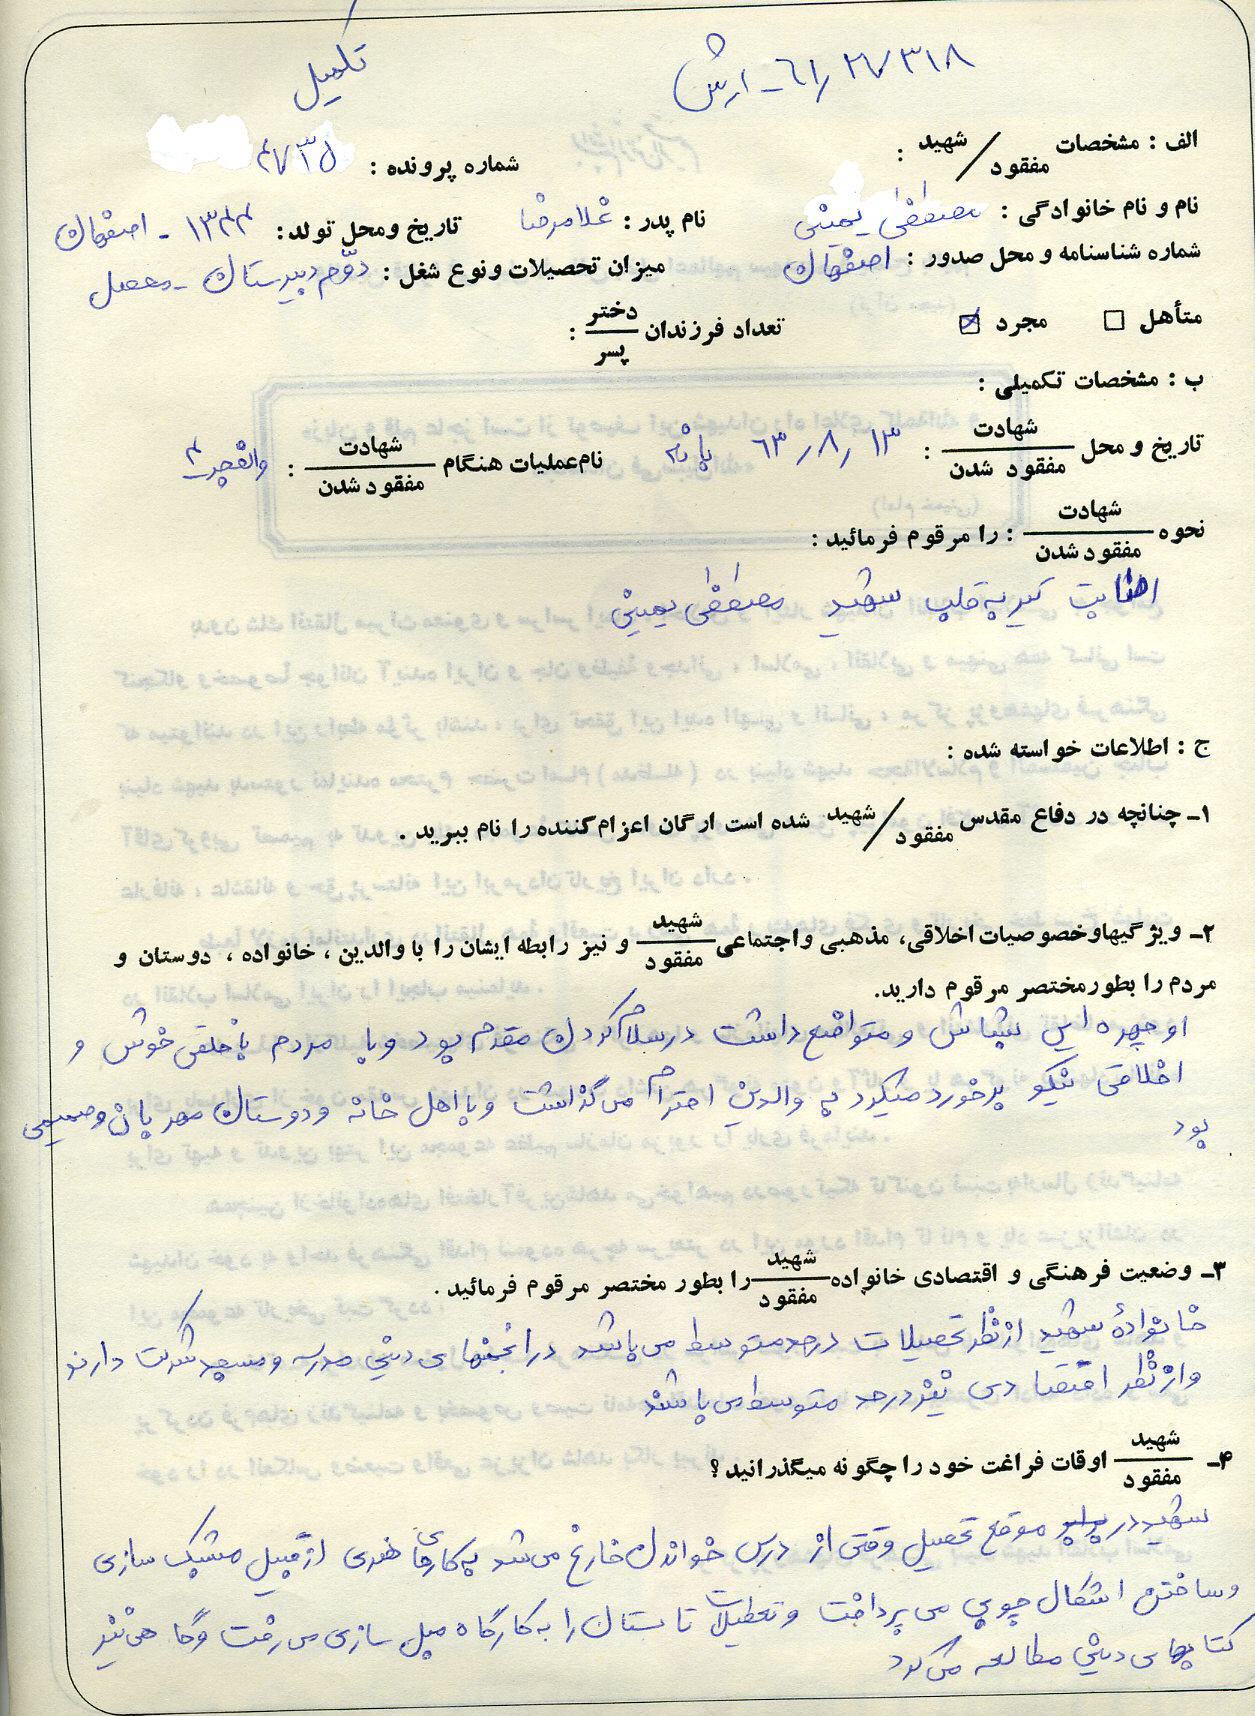 تکمیل
۶۱/۲۷/۳۱۸ - ارتش
الف : مشخصات شهید / مفقود :
شماره پرونده : ۴۷۳۵
نام و نام خانوادگی : مصطفی یمینی نام پدر : غلامرضا تاریخ ومحل تولد : ۱۳۴۴ - اصفهان
شماره شناسنامه و محل صدور : اصفهان میزان تحصیلات ونوع شغل : دوّم دبیرستان - محصل
متأهل □ مجرد ☒ تعداد فرزندان دختر / پسر :
ب : مشخصات تکمیلی :
تاریخ و محل شهادت / مفقود شدن : ۶۳/۸/۱۳ بانه نام عملیات هنگام شهادت / مفقود شدن : والفجر ۴
نحوه شهادت / مفقود شدن : را مرقوم فرمائید :
اصابت تیر به قلب شهید مصطفی یمینی
ج : اطلاعات خواسته شده :
۱ـ چنانچه در دفاع مقدس شهید / مفقود شده است ارگان اعزام کننده را نام ببرید .
۲ـ ویژگیهاوخصوصیات اخلاقی، مذهبی واجتماعی شهید / مفقود و نیز رابطه ایشان را با والدین ، خانواده ، دوستان و
مردم را بطور مختصر مرقوم دارید.
او چهره ای بشاش و متواضع داشت در سلام کردن مقدم بود و با مردم با خلقی خوش و
اخلاقی نیکو برخورد میکرد به والدین احترام می گذاشت و با اهل خانه و دوستان مهربان و صمیمی
بود
۳ـ وضعیت فرهنگی و اقتصادی خانواده شهید / مفقود را بطور مختصر مرقوم فرمائید .
خانوادهٔ شهید از نظر تحصیلات در حد متوسط می باشد در انجمنهای دینی مدرسه و مسجد شرکت دارند
و از نظر اقتصادی نیز در حد متوسط می باشند
۴ـ شهید / مفقود اوقات فراغت خود را چگونه میگذرانید ؟
شهید در موقع تحصیل وقتی از درس خواندن فارغ می شد به کارهای هنری از قبیل مشبک سازی
و ساختن اشکال چوبی می پرداخت و تعطیلات تابستان را به کارگاه مبل سازی می رفت و گاهی نیز
کتابهای دینی مطالعه می کرد